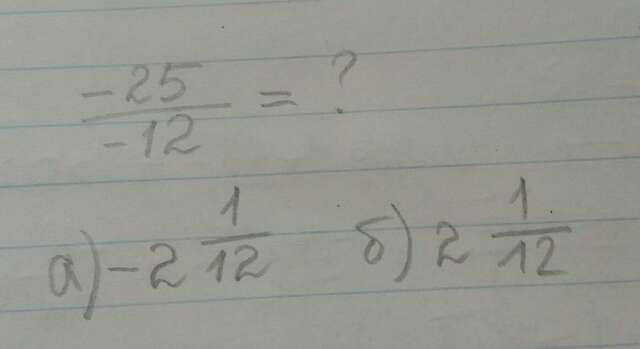 -25/-12 = ?
а) -2 1/12 б) 2 1/12